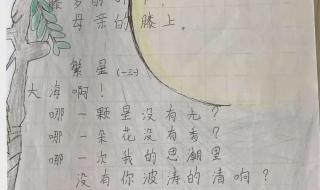 藤萝的叶下，
母亲的膝上。
繁星（一三一）
大海啊！
哪一颗星没有光？
哪一朵花没有香？
哪一次我的思潮里
没有你波涛的清响？